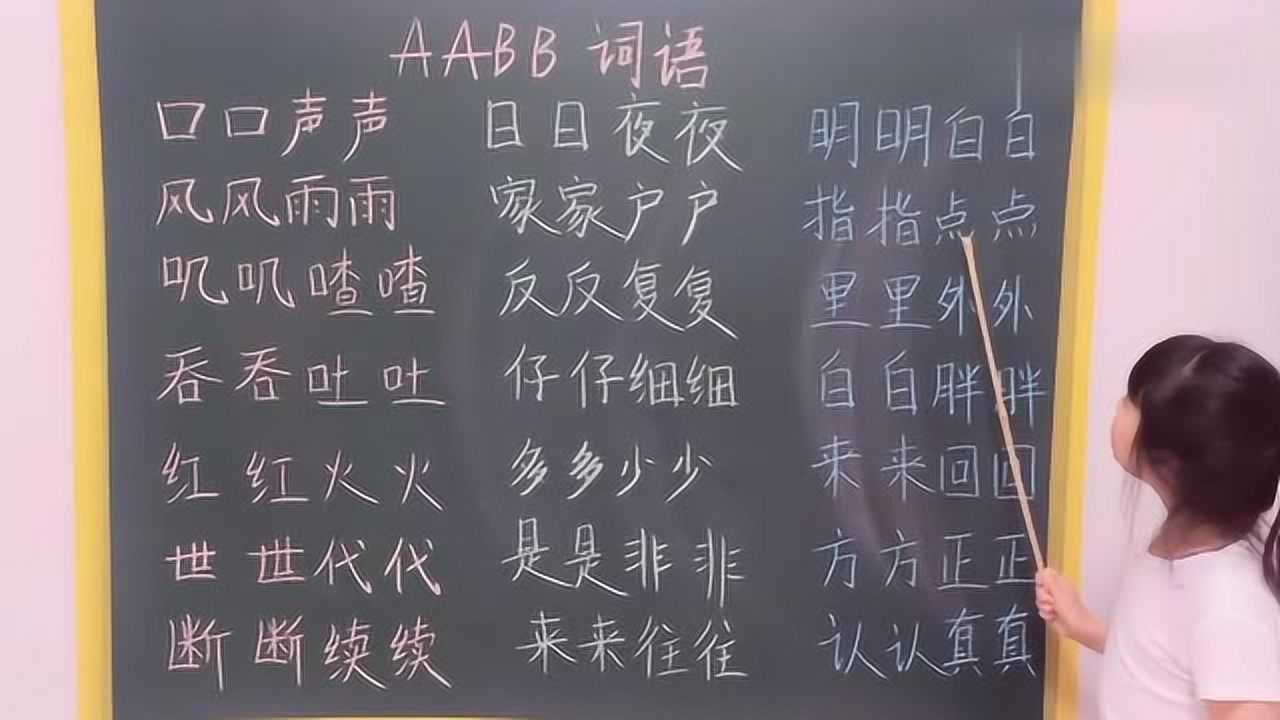 AABB 词语
口口声声 日日夜夜 明明白白
风风雨雨 家家户户 指指点点
叽叽喳喳 反反复复 里里外外
吞吞吐吐 仔仔细细 白白胖胖
红红火火 多多少少 来来回回
世世代代 是是非非 方方正正
断断续续 来来往往 认认真真